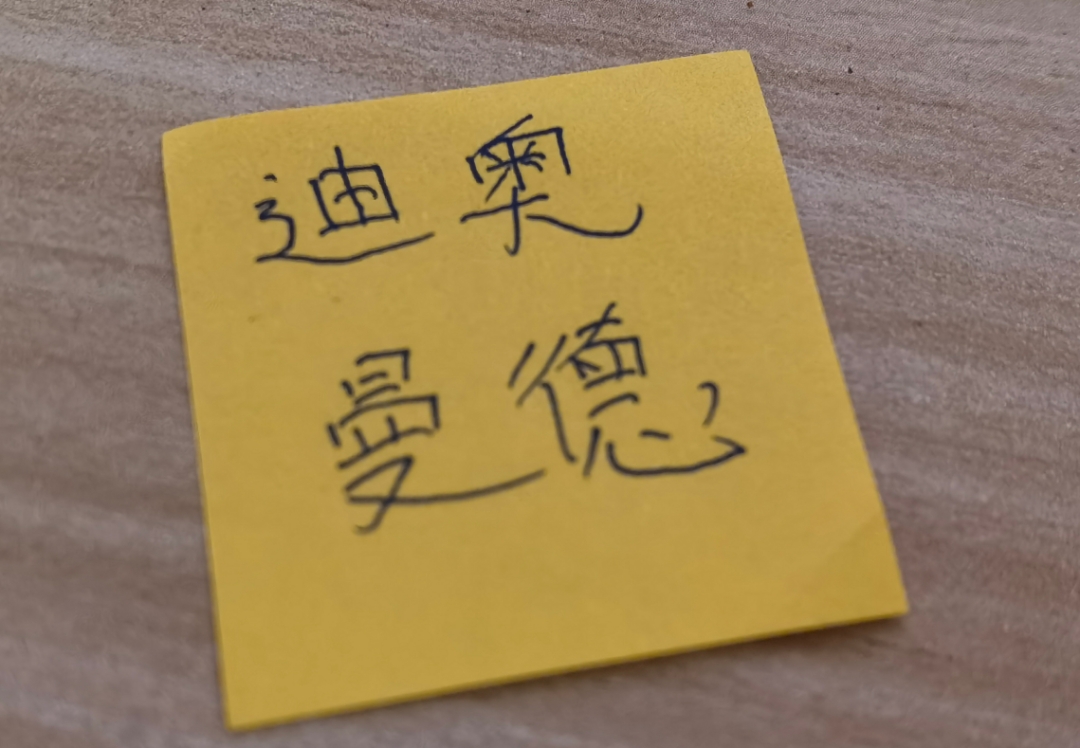 迪奥
曼德